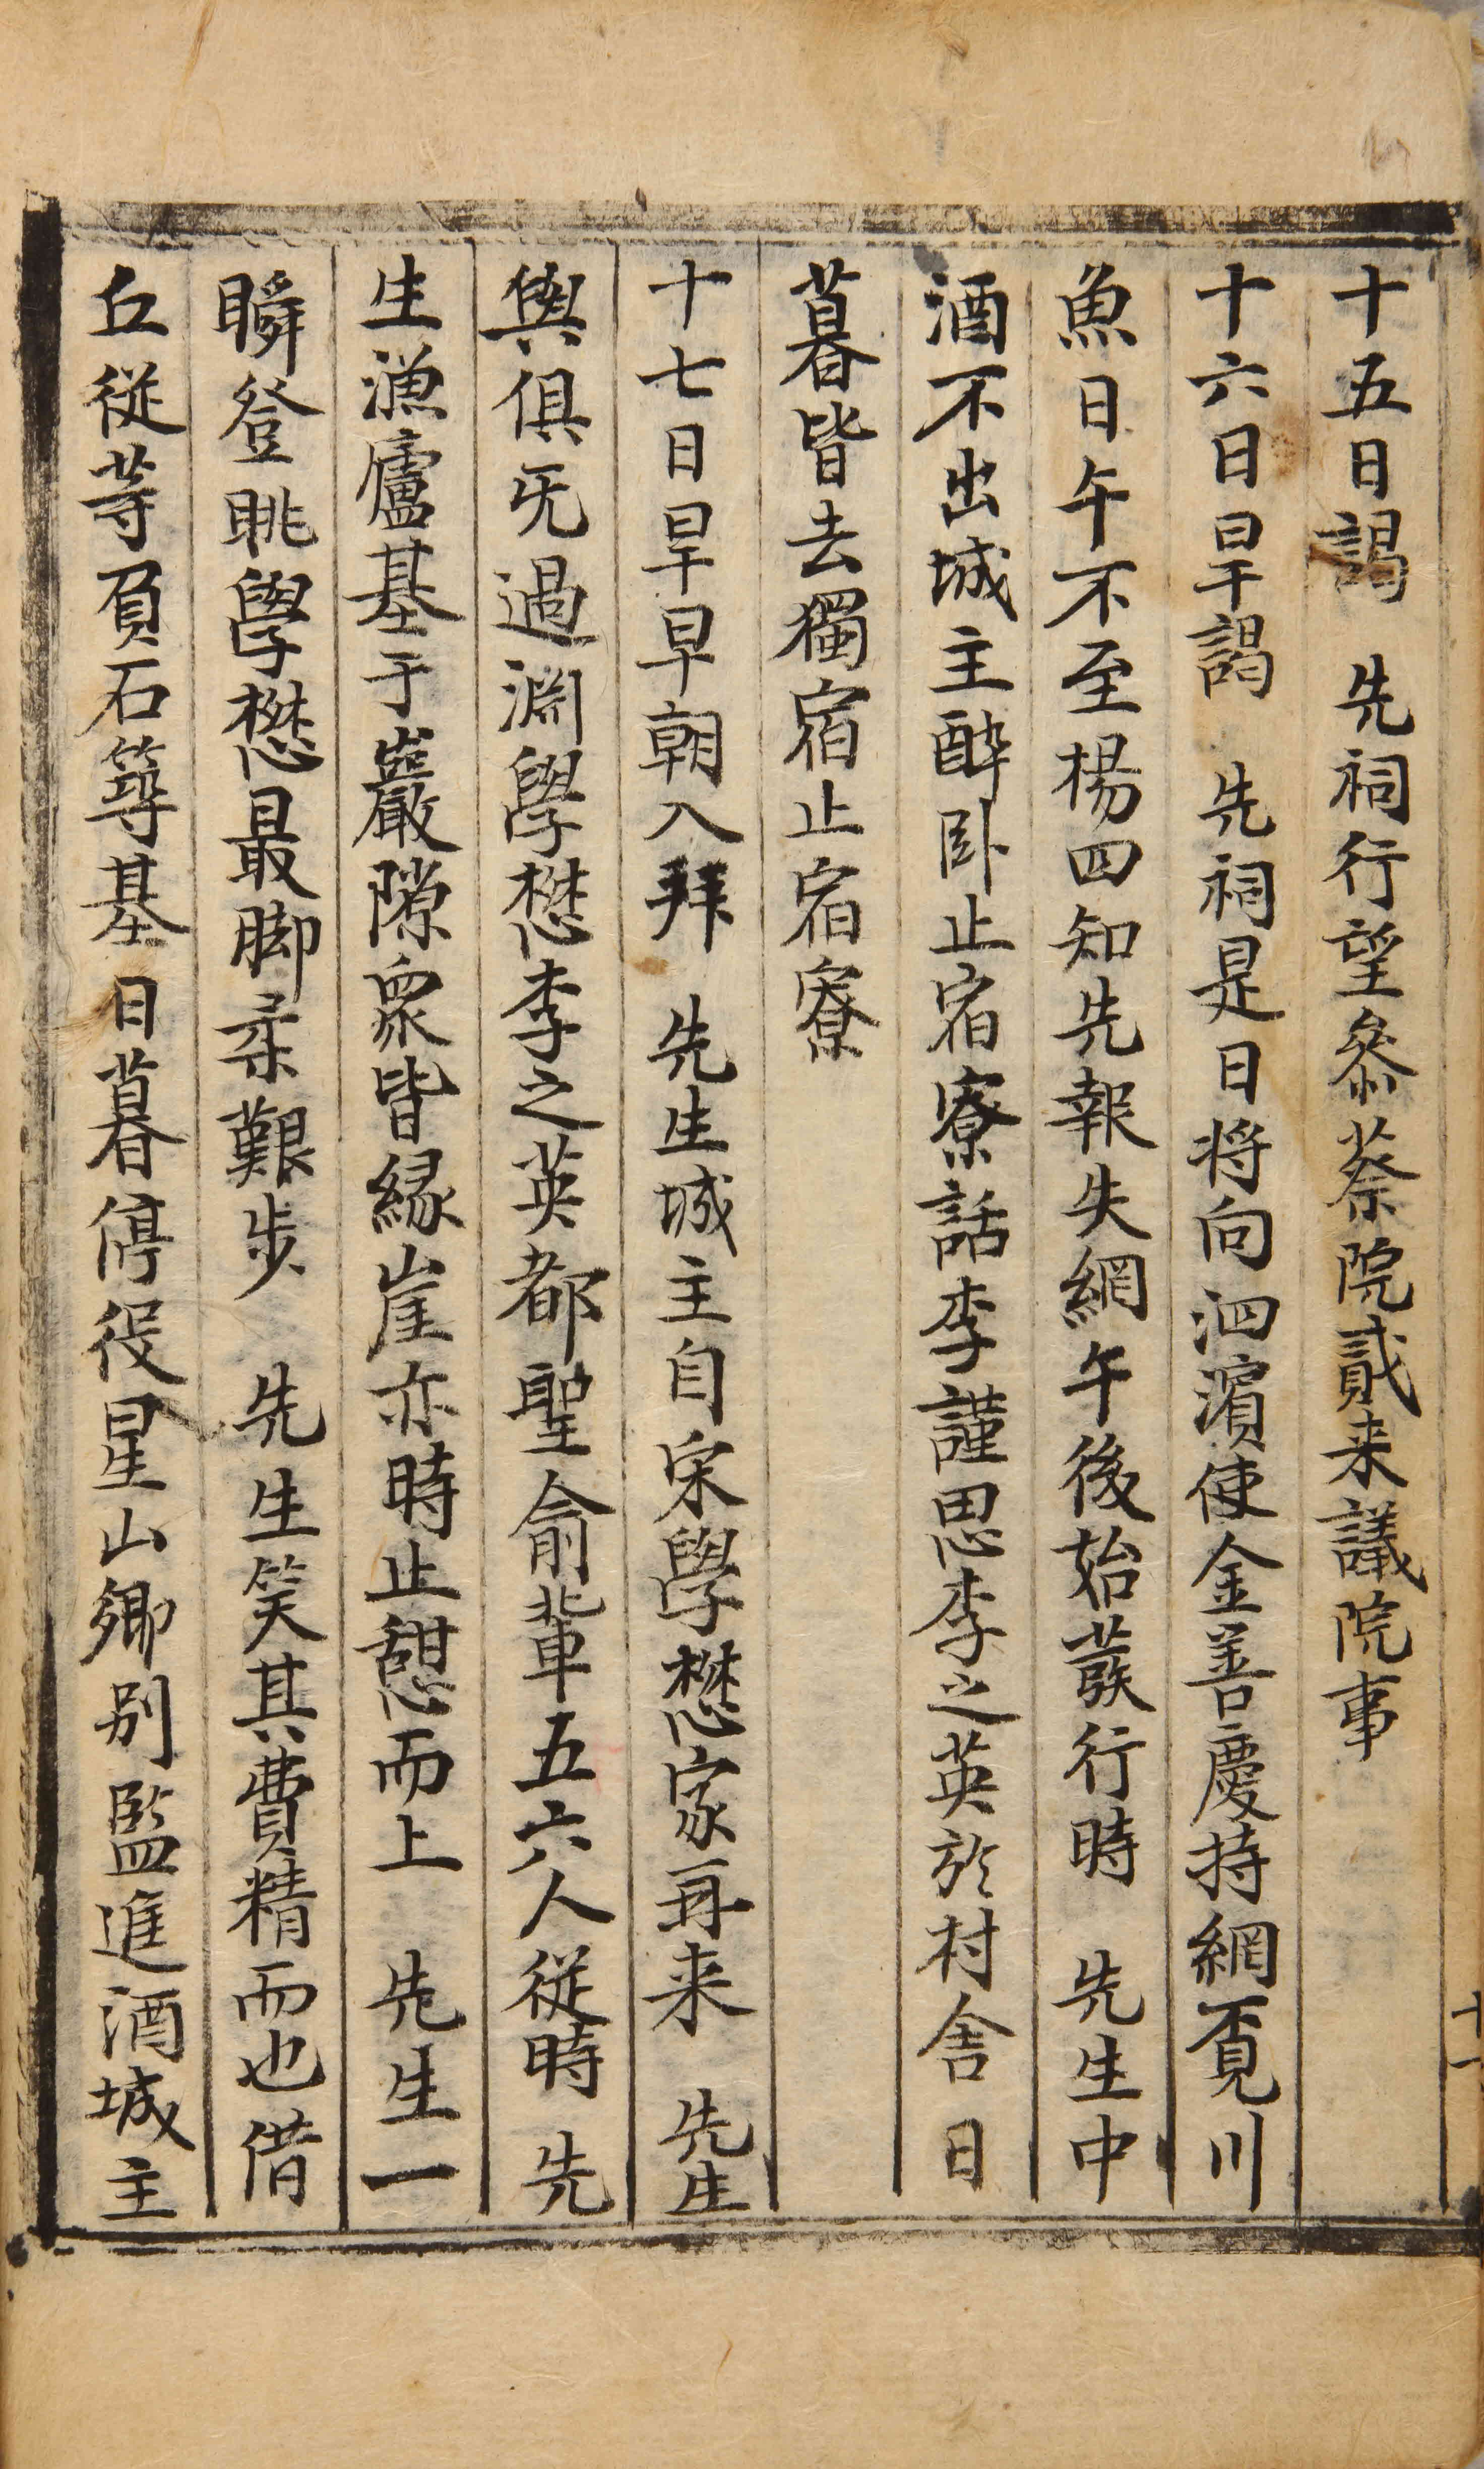 十五日謁　先祠行望叅蔡院貳来議院事
十六日早謁　先祠是日将向泗濵使金善慶持網覔川
魚日午不至楊四知先報失網午後始蕟行時　先生中
酒不出城主醉卧止宿寮話李謹思李之英於村舎日
暮皆去獨宿止宿寮
十七日早早朝入拜　先生城主自宋學懋家再来　先生
與俱旣過淵學懋李之英都聖俞軰五六人従時　先
生漁廬基于巖隙衆皆縁崖亦時止憇而上　先生一
瞬登眺學懋最脚柔艱步　先生笑其費精而也借
丘従等負石築基日暮停役星山卿别監進酒城主
十一